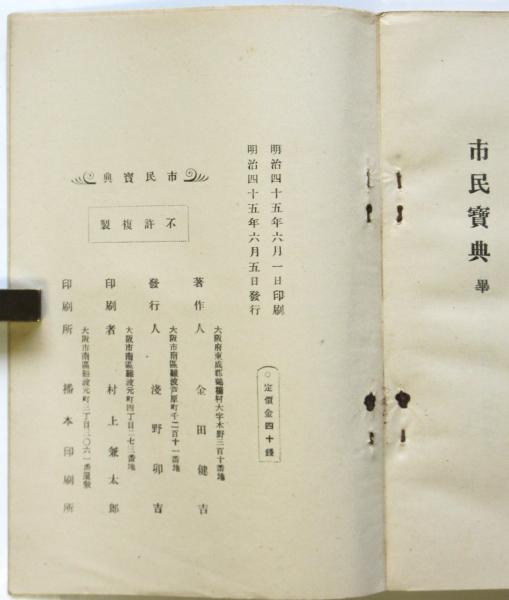 市民寶典 畢
明治四十五年六月一日印刷
明治四十五年六月五日發行
○定價金四十錢
市民寶典
不許複製
大阪府東成郡鶴橋村大字木野三百十番地
著作人 金田健吉
大阪市南區難波芦原町千二百十一番地
發行人 淺野卯吉
大阪市南區難波元町四丁目二七三番地
印刷者 村上兼太郎
大阪市南區難波元町三丁目二〇六一番屋敷
印刷所 播本印刷所